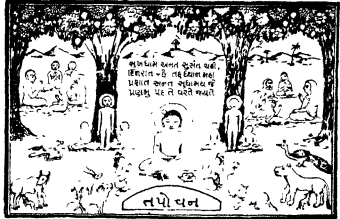 સુખધામ અનંત સુસંત ચહી,
દિનરાત રહે તદ્ ધ્યાન મહીં
પ્રશાંત અનંત સુધામય જે
પ્રણમું પદ તે વરતે જયતે
તપોવન